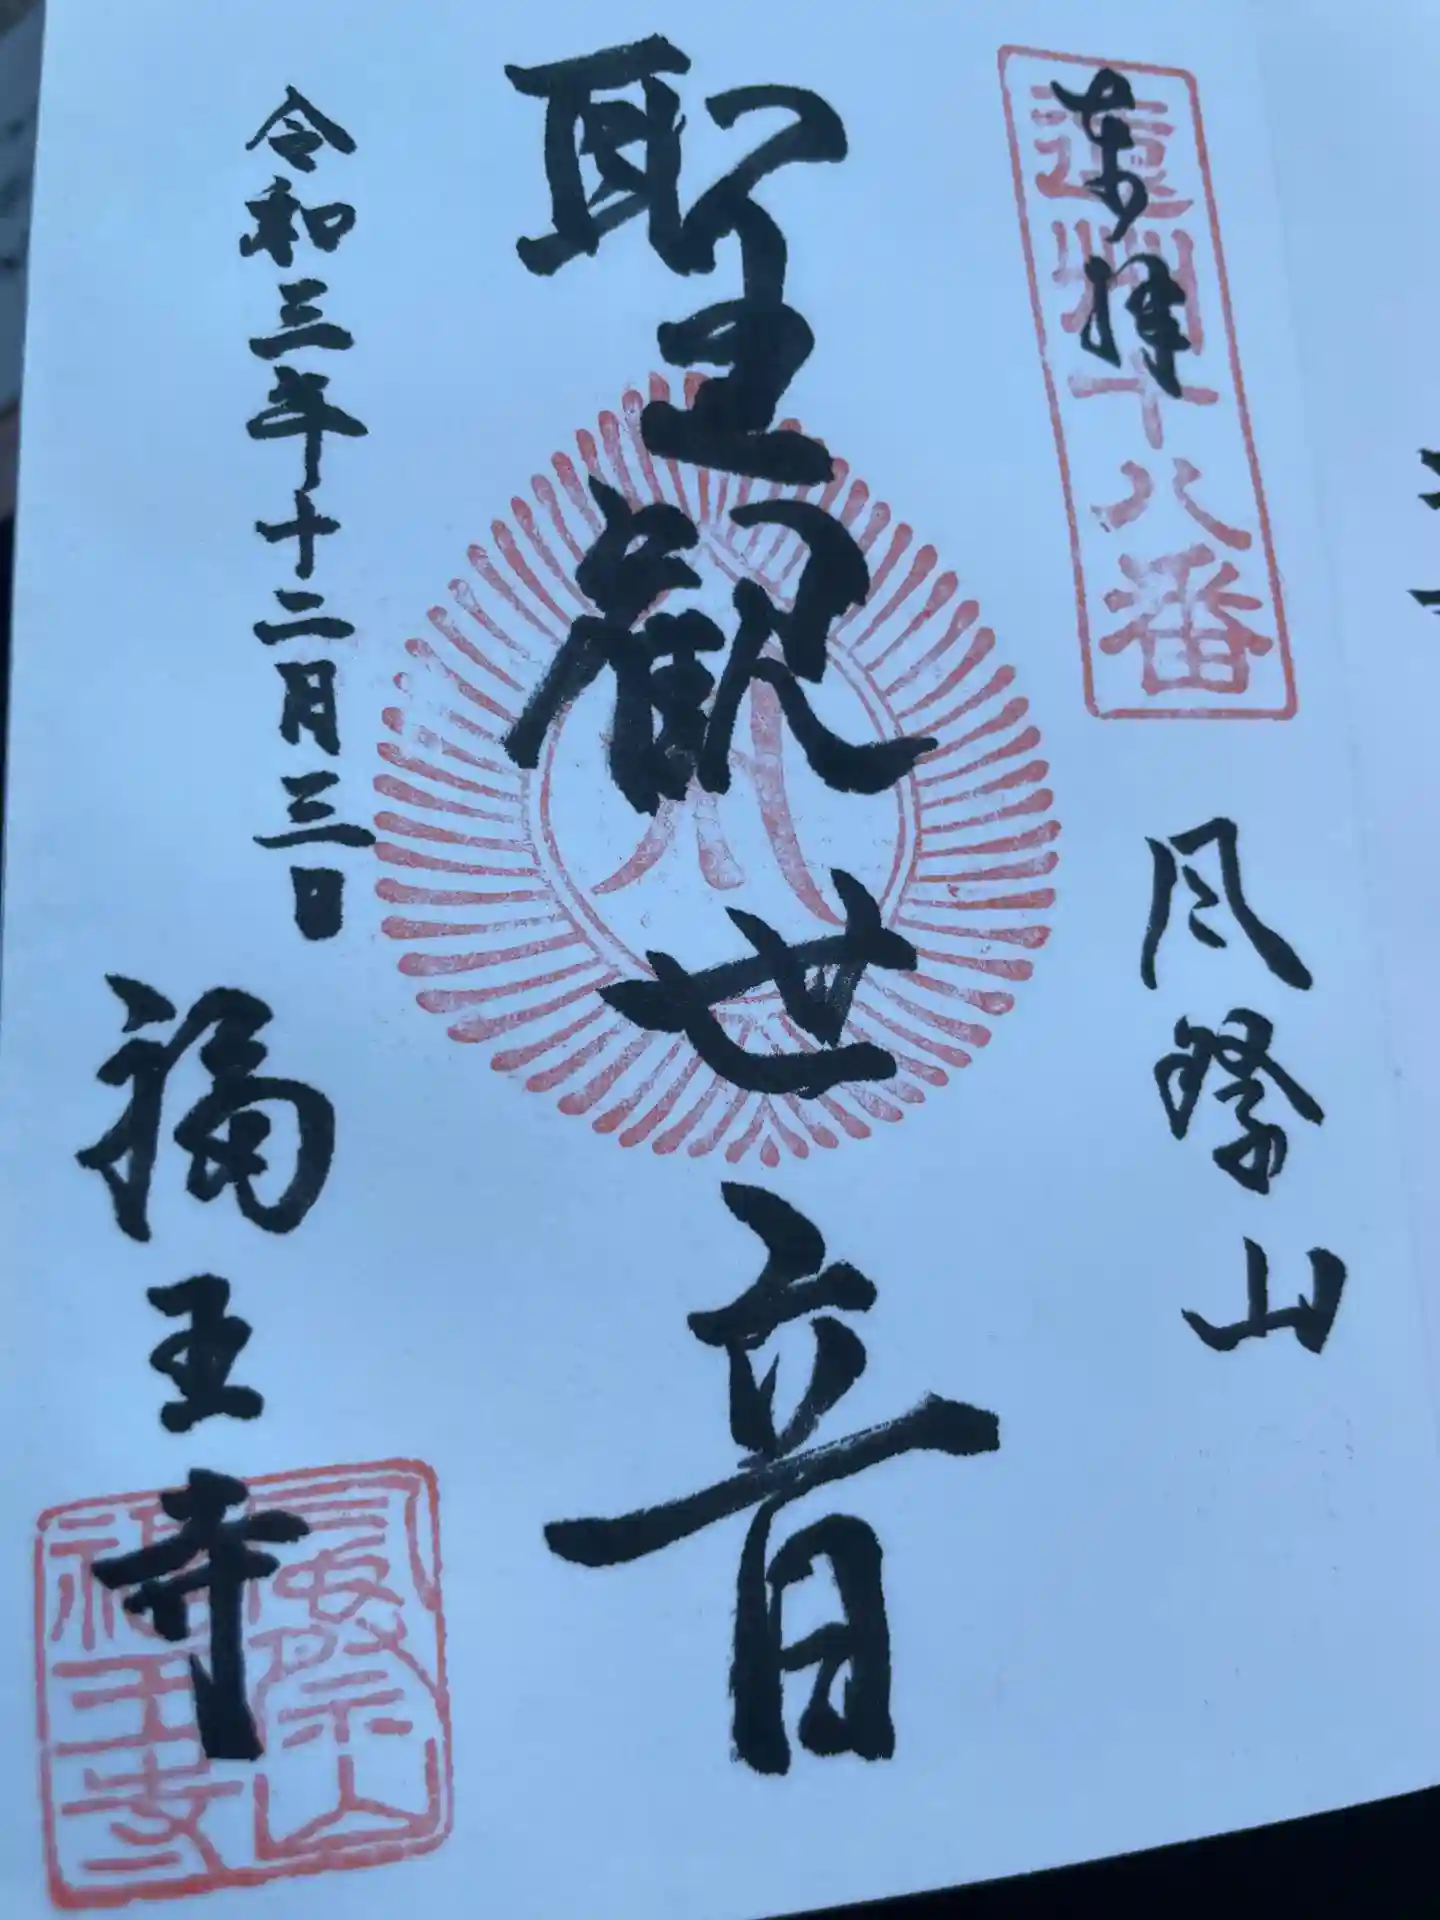 奉拝
遠州十八番
風祭山
聖観世音
令和三年十二月三日
福王寺
風祭山
福王寺